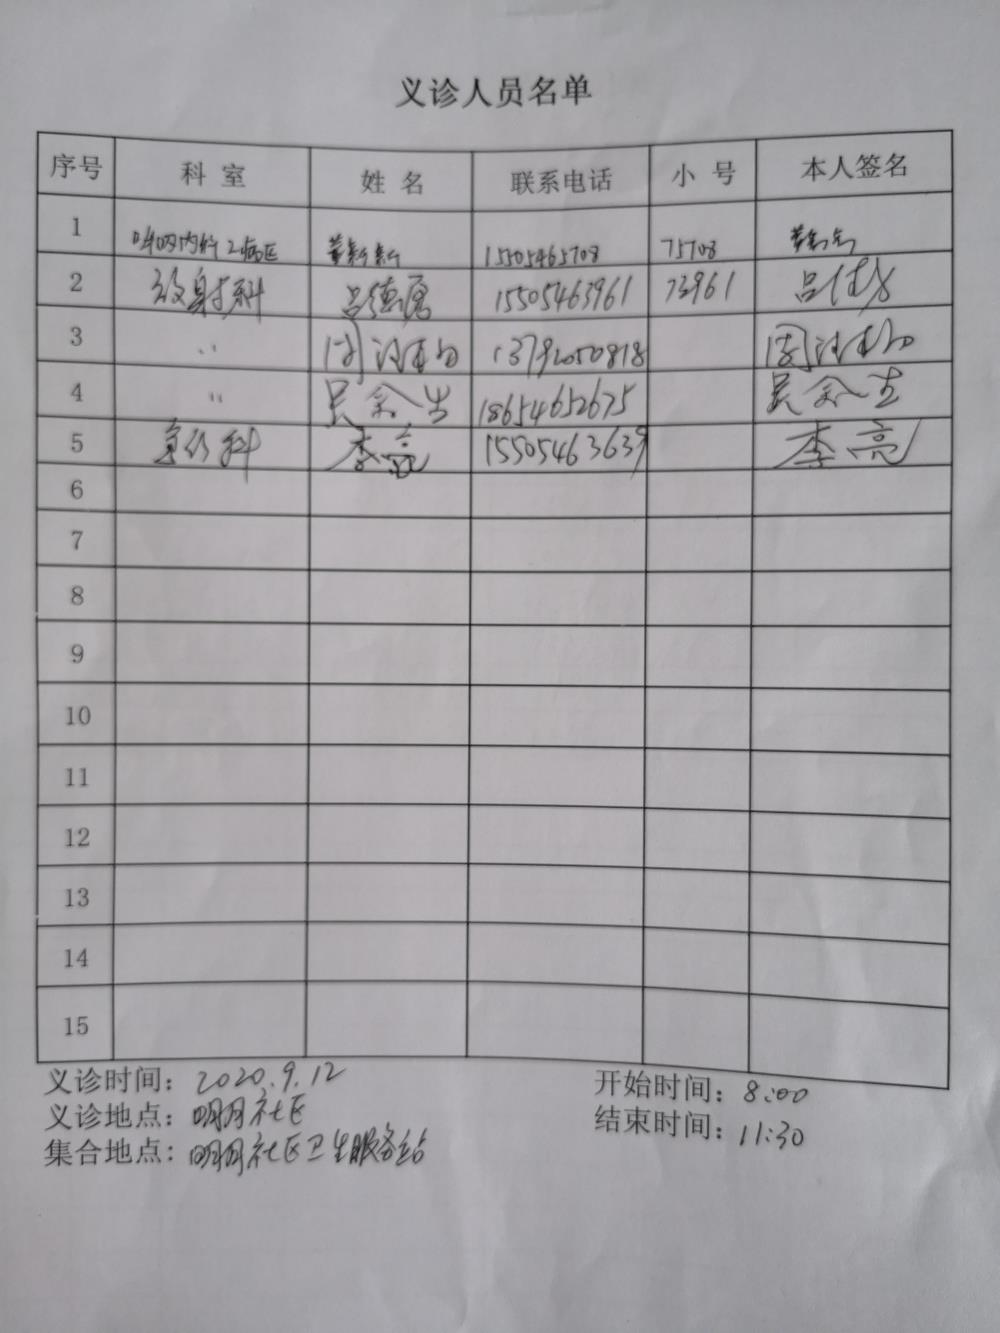 义诊人员名单
序号 科室 姓名 联系电话 小号 本人签名
1 呼吸内科2病区 15505465708 75708
2 放射科 吕德勇 15505463961 73961 吕德勇
3 〃 周 13792050818 周
4 〃 吴 生 18654652675 吴 生
5 科 李亮 15505463639 李亮
6
7
8
9
10
11
12
13
14
15
义诊时间：2020.9.12 开始时间：8:00
义诊地点：明月社区 结束时间：11:30
集合地点：明月社区卫生服务站